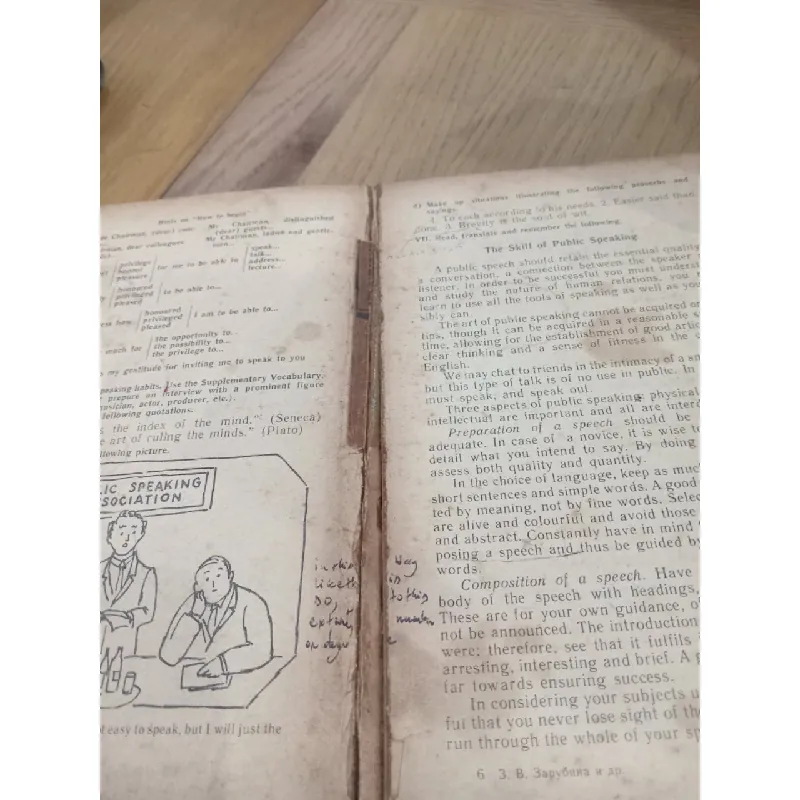 Words on "How to begin"
Chairman, (dear) com-
Mr Chairman, distinguished
(dear) guests...
man, dear colleagues
Mr Chairman, ladies and gentle-
men...
privilege
honour
pleasure
for me to be able to
speak...
talk...
address...
lecture...
honoured
privileged
pleased
to be able to...
honoured
privileged
pleased
I am to be able to...
much for
the opportunity to...
the possibility to...
the privilege to...
my gratitude for inviting me to speak to you
speaking habits. Use the Supplementary Vocabulary.
prepare an interview with a prominent figure
musician, actor, producer, etc.).
following quotations.
the index of the mind." (Seneca)
art of ruling the minds." (Plato)
llowing picture.
IC SPEAKING
SOCIATION
t easy to speak, but I will just the
in this way
like th in
so, to this
on degr e
d) Make up situations illustrating the following proverbs and
sayings:
1. To each according to his needs. 2. Easier said than
done. 3. Brevity is the soul of wit.
VII. Read, translate and remember the following.
The Skill of Public Speaking
A public speech should retain the essential quality
a conversation, a connection between the speaker
listener. In order to be successful you must underst
and study the nature of human relations, you
learn to use all the tools of speaking as well as you
sibly can.
The art of public speaking cannot be acquired
tips, though it can be acquired in a reasonable
time, allowing for the establishment of good artic
clear thinking and a sense of fitness in the
English.
We may chat to friends in the intimacy of a sm
but this type of talk is of no use in public. In
must speak, and speak out.
Three aspects of public speaking physical
intellectual are important and all are inter
Preparation of a speech should be
adequate. In case of a novice, it is wise t
detail what you intend to say. By doing
assess both quality and quantity.
In the choice of language, keep as muc
short sentences and simple words. A good
ted by meaning, not by fine words. Selec
are alive and colourful and avoid those
and abstract. Constantly have in mind
posing a speech and thus be guided by
words.
Composition of a speech. Have
body of the speech with headings,
These are for your own guidance, o
not be announced. The introduction
were; therefore, see that it fulfils
arresting, interesting and brief. A g
far towards ensuring success.
In considering your subjects u
ful that you never lose sight of the
run through the whole of your sp
6 З. В. Зарубина и др.